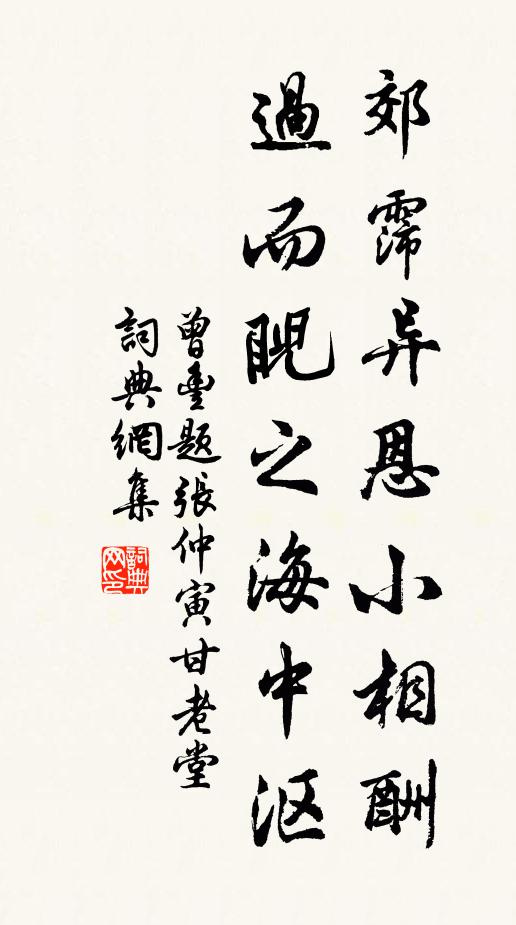 郊霈异恩小相酬
過而睨之海中沤
曾豐题張仲寅甘老堂
詞典網集
詞典网印